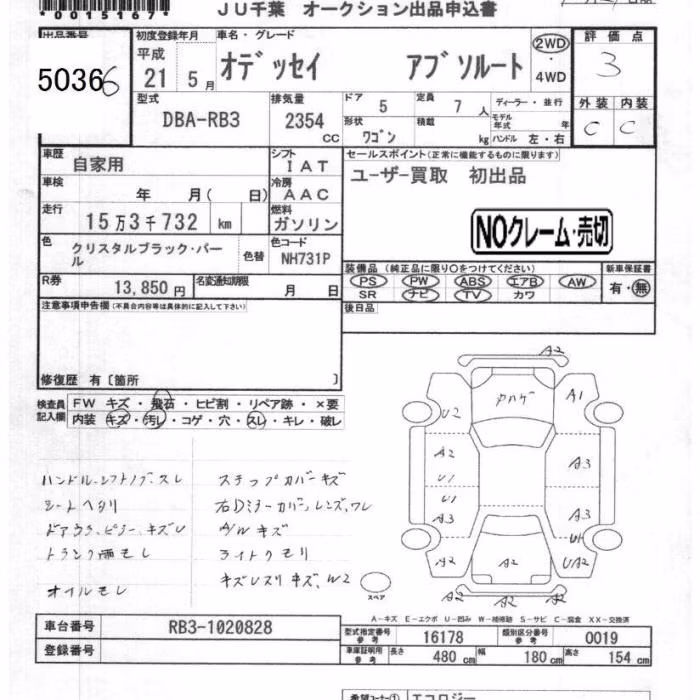 *0015167*
JU千葉 オークション出品申込書
出品番号
50366
初度登録年月
平成
21 5月
車名・グレード
オデッセイ アブソルート
2WD
・
4WD
評価点
3
外装 内装
C C
型式
DBA-RB3
排気量
2354
CC
ドア
5
定員
7人
ディーラー・並行
モデル年式 年
形状
ワゴン
積載
kg
ハンドル 左・右
車歴
自家用
シフト
IAT
車検
年 月( 日)
冷房
AAC
走行
15万3千732 km
燃料
ガソリン
色
クリスタルブラック・パール
色替
色コード
NH731P
R券
13,850円
名変通知期限
月 日
セールスポイント(正常に機能するものに限ります)
ユーザー買取 初出品
NOクレーム・売切
装備品(純正品に限り○をつけてください)
新車保証書
PS PW ABS エアB AW
SR ナビ TV カワ
有・無
後日品
注意事項申告欄(不具合内容等は具体的に記入して下さい)
修復歴 有〔箇所 〕
検査員記入欄
FW キズ・飛石・ヒビ割・リペア跡・×要
内装 キズ・汚レ・コゲ・穴・スレ・キレ・破レ
ハンドル・シフトノブスレ
シートヘタリ
ドアウラ、ピラーキズU
トランク雨モレ
オイルモレ
ステップカバーキズ
右Dミラーカバー、レンズ、ワレ
A/Wキズ
ライトクモリ
キズヒスリキズ、W2
A2
U2
ウハゲ
A1
A2
U1
U1
A3
A3
A3
U1
A2
A2
UA2
A2
A2
A2
スペア
A-キズ E-エクボ U-凹み W-補修跡 S-サビ C-腐食 XX-交換済
車台番号
RB3-1020828
登録番号
型式指定番号
参考
16178
類別区分番号
参考
0019
車庫証明用
参考
長さ
480cm
幅
180cm
高さ
154cm
希望コーナー①
エコロジー